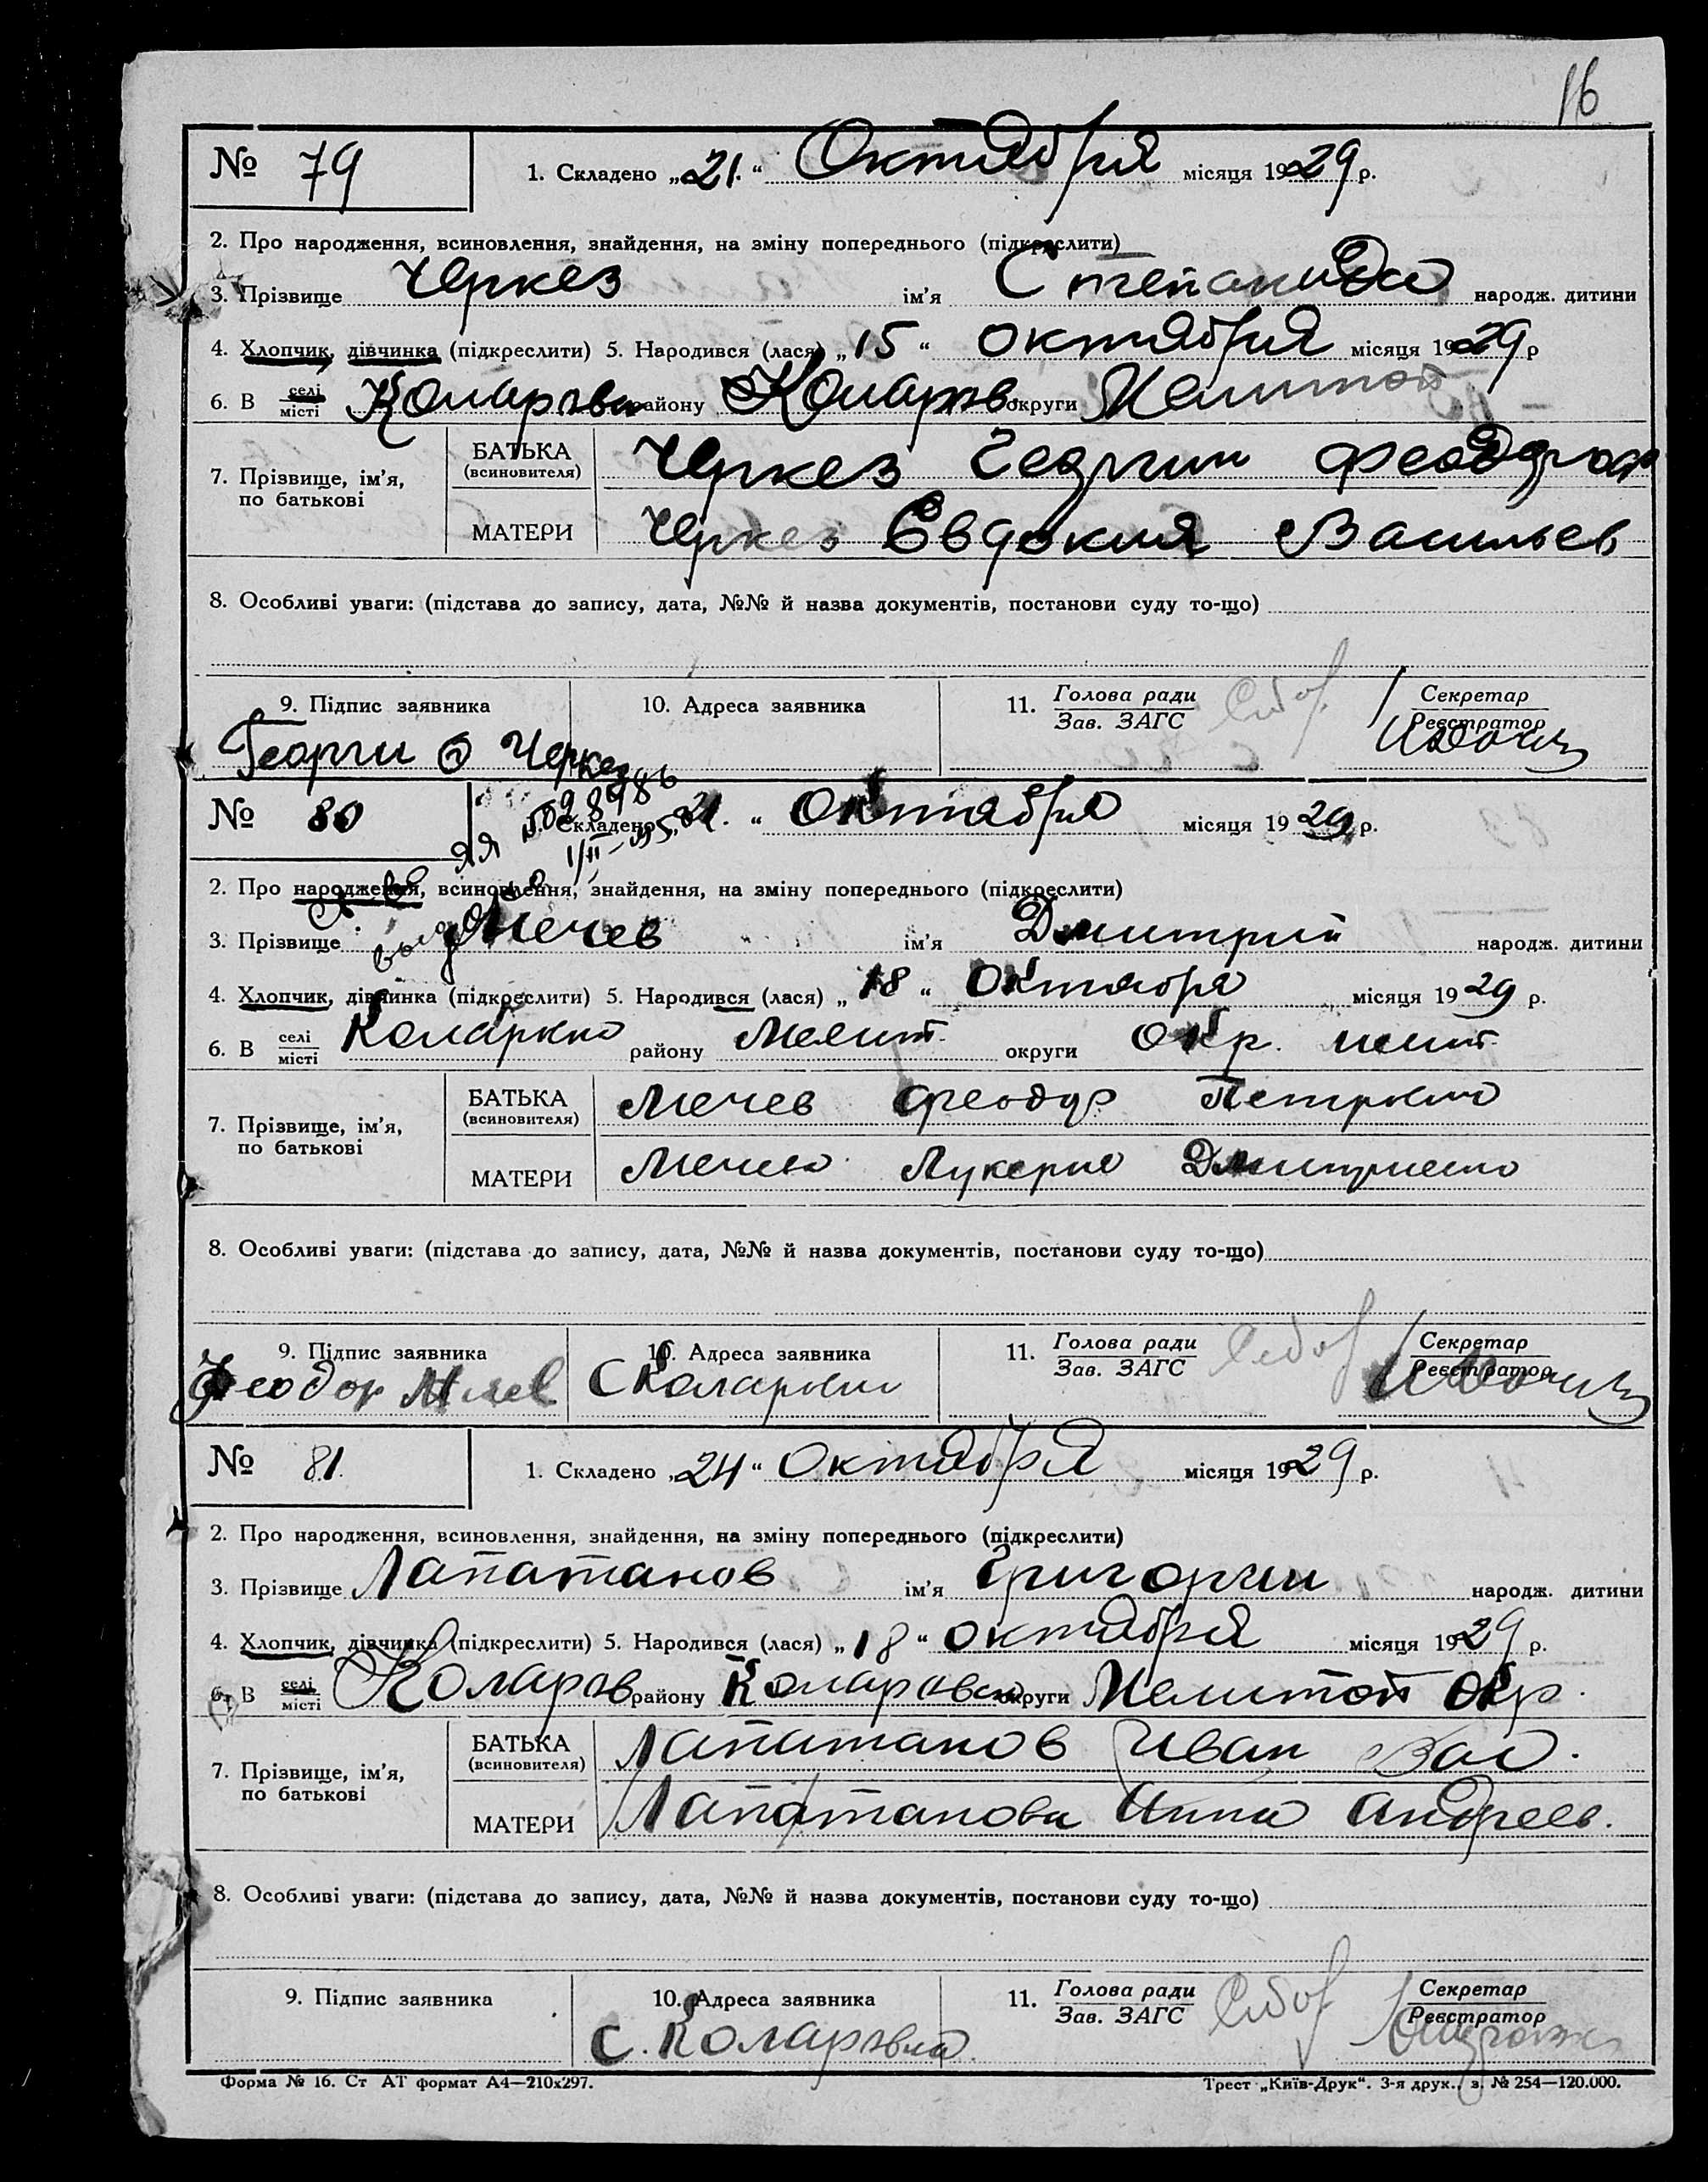 16
№ 79 1. Складено „21.“ Октября місяця 1929 р.
2. Про народження, всиновлення, знайдення, на зміну попереднього (підкреслити)
3. Прізвище Черкез ім'я Степанида народж. дитини
4. Хлопчик, дівчинка (підкреслити) 5. Народився (лася) „15“ октября місяця 1929 р
6. В селі/місті району Коларов. округи Мелитоп
7. Прізвище, ім'я, по батькові БАТЬКА (всиновителя) Черкез Георгии Феодоров
МАТЕРИ Черкез Евдокия Васильев
8. Особливі уваги: (підстава до запису, дата, №№ й назва документів, постанови суду то-що)
9. Підпис заявника 10. Адреса заявника 11. Голова ради / Зав. ЗАГС Секретар / Реєстратор
Георги Ф Черкез
№ 80 1. Складено „21.“ Октября місяця 1929 р.
ЯЯ
2. Про народження, всиновлення, знайдення, на зміну попереднього (підкреслити)
3. Прізвище Мечев ім'я Дмитрий народж. дитини
4. Хлопчик, дівчинка (підкреслити) 5. Народився (лася) „18“ Октября місяця 1929 р.
6. В селі/місті району Мелит. округи Окр.
7. Прізвище, ім'я, по батькові БАТЬКА (всиновителя) Мечев Феодор
МАТЕРИ Лукерия
8. Особливі уваги: (підстава до запису, дата, №№ й назва документів, постанови суду то-що)
9. Підпис заявника 10. Адреса заявника 11. Голова ради / Зав. ЗАГС Секретар / Реєстратор
Феодор
№ 81. 1. Складено „24“ Октября місяця 1929 р.
2. Про народження, всиновлення, знайдення, на зміну попереднього (підкреслити)
3. Прізвище Лапатанов ім'я Григории народж. дитини
4. Хлопчик, дівчинка (підкреслити) 5. Народився (лася) „18“ октября місяця 1929 р.
6. В селі/місті Коларов району округи Мелитоп Окр.
7. Прізвище, ім'я, по батькові БАТЬКА (всиновителя) Лапатанов Иван Вас.
МАТЕРИ Лапатанова Анна Андреев.
8. Особливі уваги: (підстава до запису, дата, №№ й назва документів, постанови суду то-що)
9. Підпис заявника 10. Адреса заявника 11. Голова ради / Зав. ЗАГС Секретар / Реєстратор
С. Коларовка
Форма № 16. Ст АТ формат А4—210х297. Трест „Київ-Друк“. 3-я друк., з. № 254—120.000.